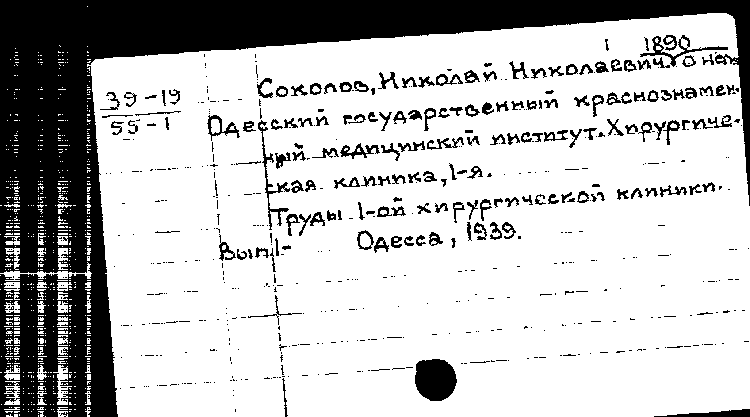 1890
Соколов, Николай Николаевич. о нем
39-19
55-1
Одесский государственный краснознамен-
ный медицинский институт. Хирургиче-
ская клиника, 1-я.
Труды 1-ой хирургической клиники.
Вып. 1- Одесса, 1939.